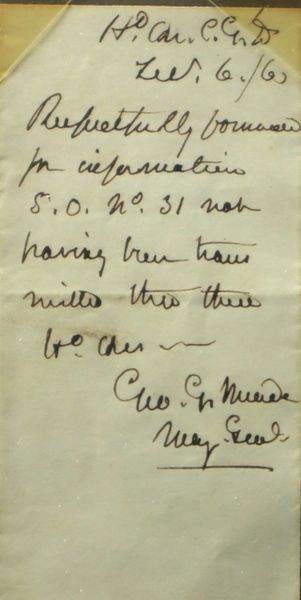 Hd Qr. C. G. D
Feb. 6. /63
Respectfully forwarded
for information
S. O. No. 31 not
having been trans
mitted thro these
Hd Qrs —
Geo. G. Meade
Maj. Genl.